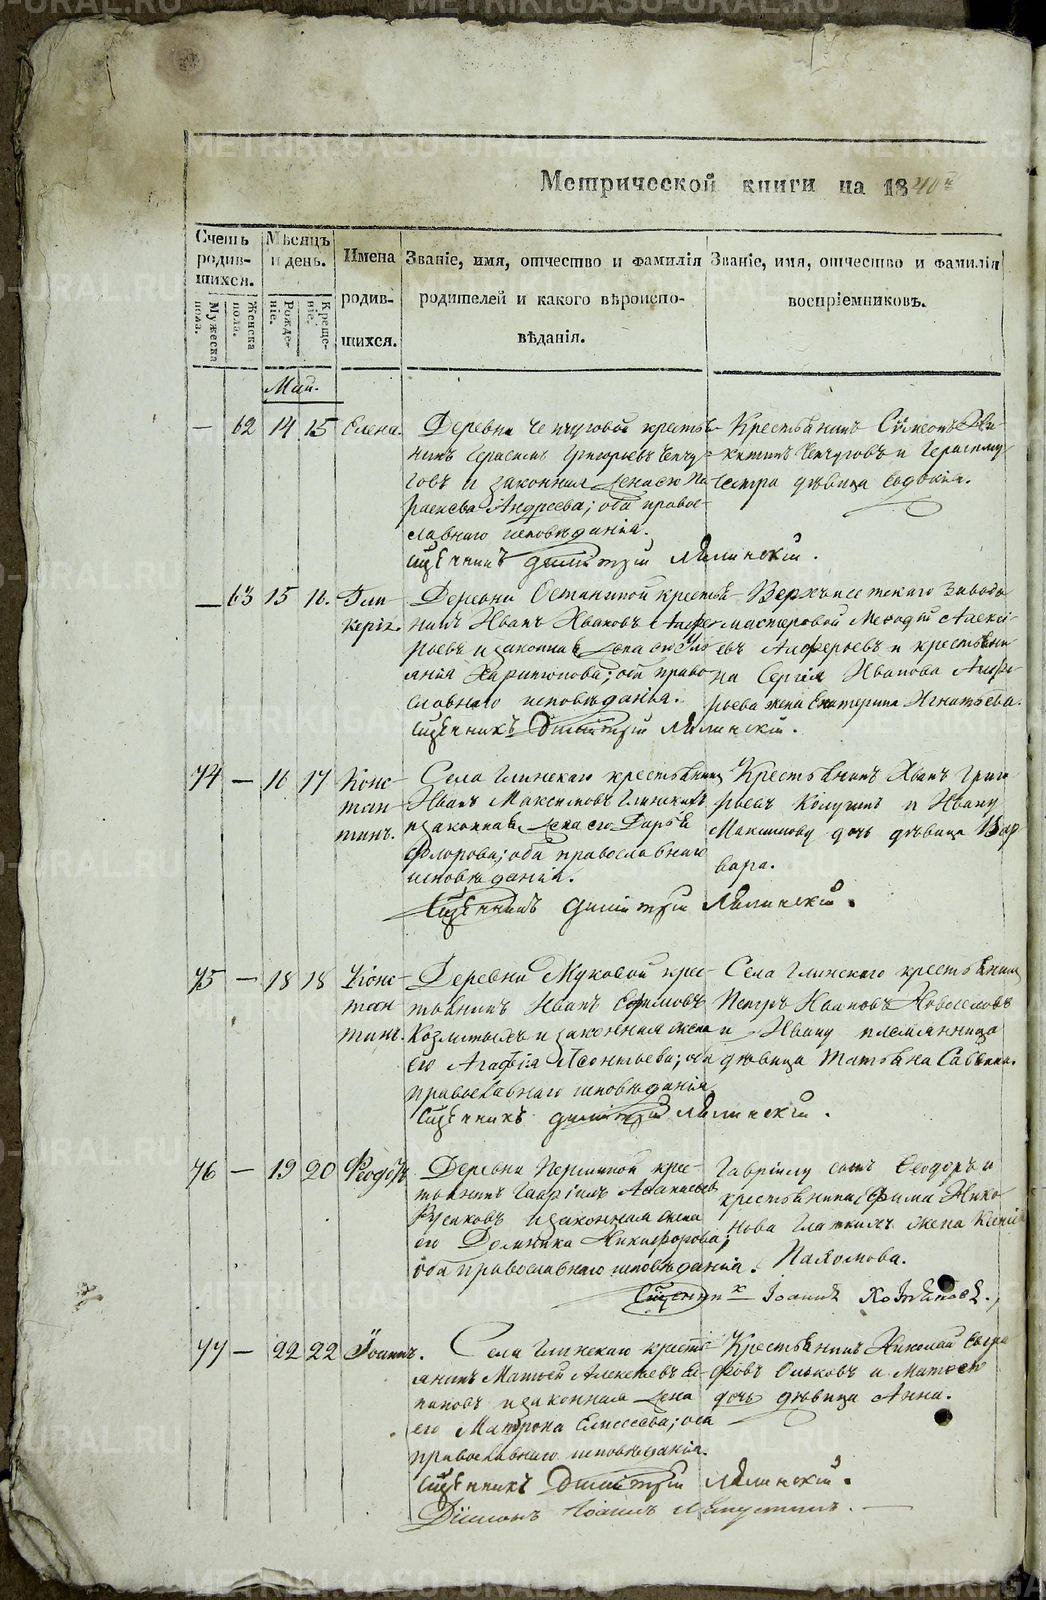 Метрической книги на 1840й
Счетъ родив-шихся.
Мѣсяцъ и день.
Имена родив-шихся.
Званіе, имя, отчество и фамилія родителей и какого вѣроиспо-вѣданія.
Званіе, имя, отчество и фамилія воспріемниковъ.
Мужеска пола.
Женска пола.
Рожде-ніе.
Креще-ніе.
Маій.
— 62 14 15 Елена.
Деревни Чепчуговой крестья-
нинъ Герасимъ Григорьевъ Чепчу-
говъ и законная жена его
Андреева; оба право-
славнаго исповѣданія.
Священникъ Димитрій Лялинскій.
Крестьянинъ Сѵмеонъ
Чепчуговъ и Герасиму
сестра дѣвица Евдокія.
— 63 15 16. Гли-
керія.
Деревни Останиной крестья-
нинъ Иванъ Ивановъ Алфе-
рьевъ и законная жена его
Харитонова; оба право-
славнаго исповѣданія.
Священникъ Димитрій Лялинскій.
Верхъисетскаго завода
мастеровой Меѳодій Алексѣ-
евъ Алферьевъ и крестьяни-
на Сергія Иванова Алфе-
рьева жена Екатерина Игнатьева.
74 — 16 17 Конс-
тан-
тинъ.
Села Глинскаго крестьянинъ
Иванъ Максимовъ Глинскихъ
и законная жена его Дарья
Флорова; оба православнаго
исповѣданія.
Священникъ Димитрій Лялинскій.
Крестьянинъ Иванъ Григо-
рьевъ и Ивану
Максимову дочь дѣвица Вар-
вара.
75 — 18 18 Конс-
тан-
тинъ.
Деревни Жуковой крес-
тьянинъ Иванъ Ефимовъ
и законная жена
его Агафія Леонтьева; оба
православнаго исповѣданія
Священникъ Димитрій Лялинскій.
Села Глинскаго крестьянинъ
Петръ Ивановъ Новоселовъ
и Ивану племянница
дѣвица Татьяна Савина.
76 — 19 20 Ѳеодоръ
Деревни Першиной крес-
тьянинъ Гавріилъ Аѳанасьевъ
Русаковъ и законная жена
его Домника Никифорова;
оба православнаго исповѣданія.
Священникъ Іоаннъ
Гавріилу сынъ Ѳеодоръ и
крестьянина Ефима Нико-
нова Гладкихъ жена
Пахомова.
77 — 22 22 Іоаннъ.
Села Глинскаго кресть-
янинъ Матѳей Алексѣевъ
и законная жена
его Матрона Елисеева; оба
православнаго исповѣданія.
Священникъ Димитрій Лялинскій.
Діаконъ Іоаннъ
Крестьянинъ Николай
Ольковъ и Матѳею
дочь дѣвица Анна.